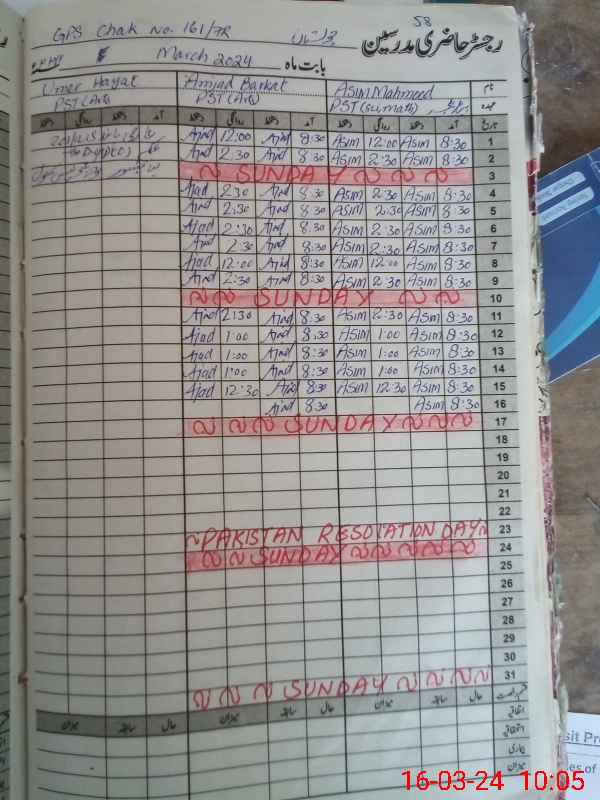 58
GPS Chak No. 161/7R رجسٹر حاضری مدرسین
March 2024 بابت ماہ
Umer Hayat Amjad Barkat Asim Mahmeed نام
PST (Arts) PST (Arts) PST (sumath) عہدہ
دستخط روانگی دستخط آمد دستخط روانگی دستخط آمد دستخط روانگی دستخط آمد تاریخ
Ajad 12:00 Ajad 8:30 Asim 12:00 Asim 8:30 1
Ajad 2:30 Ajad 8:30 Asim 2:30 Asim 8:30 2
SUNDAY 3
Ajad 2:30 Ajad 8:30 Asim 2:30 Asim 8:30 4
Ajad 2:30 Ajad 8:30 Asim 2:30 Asim 8:30 5
Ajad 2:30 Ajad 8:30 Asim 2:30 Asim 8:30 6
Ajad 2:30 Ajad 8:30 Asim 2:30 Asim 8:30 7
Ajad 12:00 Ajad 8:30 Asim 12:00 Asim 8:30 8
Ajad 2:30 Ajad 8:30 Asim 2:30 Asim 8:30 9
SUNDAY 10
Ajad 2:30 Ajad 8:30 Asim 2:30 Asim 8:30 11
Ajad 1:00 Ajad 8:30 Asim 1:00 Asim 8:30 12
Ajad 1:00 Ajad 8:30 Asim 1:00 Asim 8:30 13
Ajad 1:00 Ajad 8:30 Asim 1:00 Asim 8:30 14
Ajad 12:30 Ajad 8:30 Asim 12:30 Asim 8:30 15
Ajad 8:30 Asim 8:30 16
SUNDAY 17
18
19
20
21
22
PAKISTAN RESOLATION DAY 23
SUNDAY 24
25
26
27
28
29
30
SUNDAY 31
میزان سابقہ حال میزان سابقہ حال میزان سابقہ حال
16-03-24 10:05